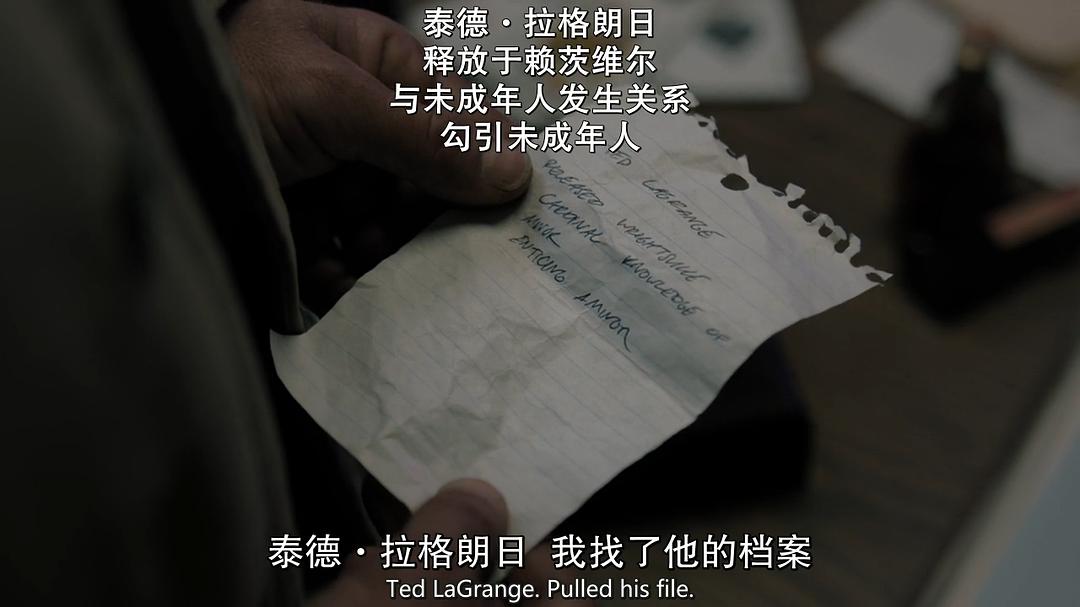 泰德·拉格朗日
释放于赖茨维尔
与未成年人发生关系
勾引未成年人
TED LAGRANGE
RELEASED WRIGHTSVILLE
CARDINAL KNOWLEDGE OF
MINOR
ENTICING A MINOR
泰德·拉格朗日 我找了他的档案
Ted LaGrange. Pulled his file.